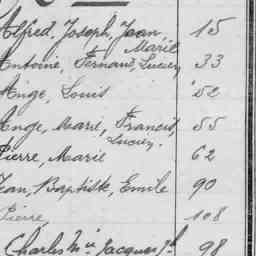 Alfred, Joseph, Jean, Marie 15
Antoine, Fernand, Lucien 33
Ange, Louis 52
Ange, Marie, Francis, Lucien. 55
Pierre, Marie 62
Jean, Baptiste, Emile 90
Pierre, 108
Charles Mie Jacques Jh 98